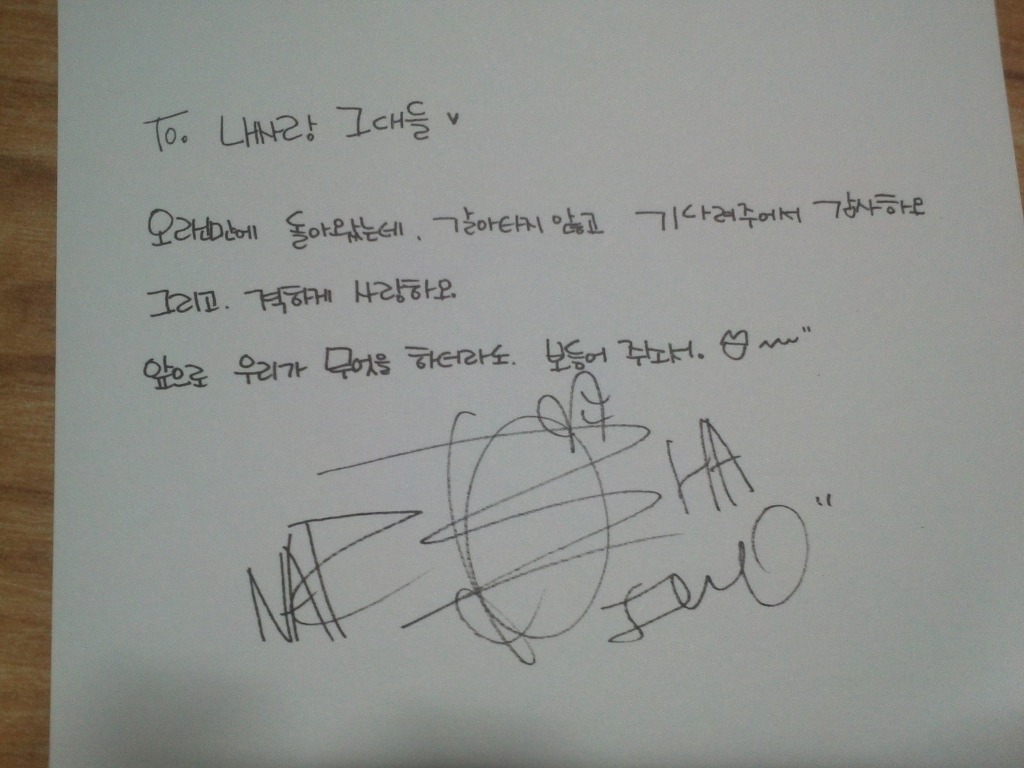 To. 내사랑 그대들 ♥
오랜만에 돌아왔는데. 갈아타지 않고 기다려주어서 감사하오
그리고. 격하게 사랑하오.
앞으로 우리가 무엇을 하더라도. 보듬어 주고서. ♡~"
HA